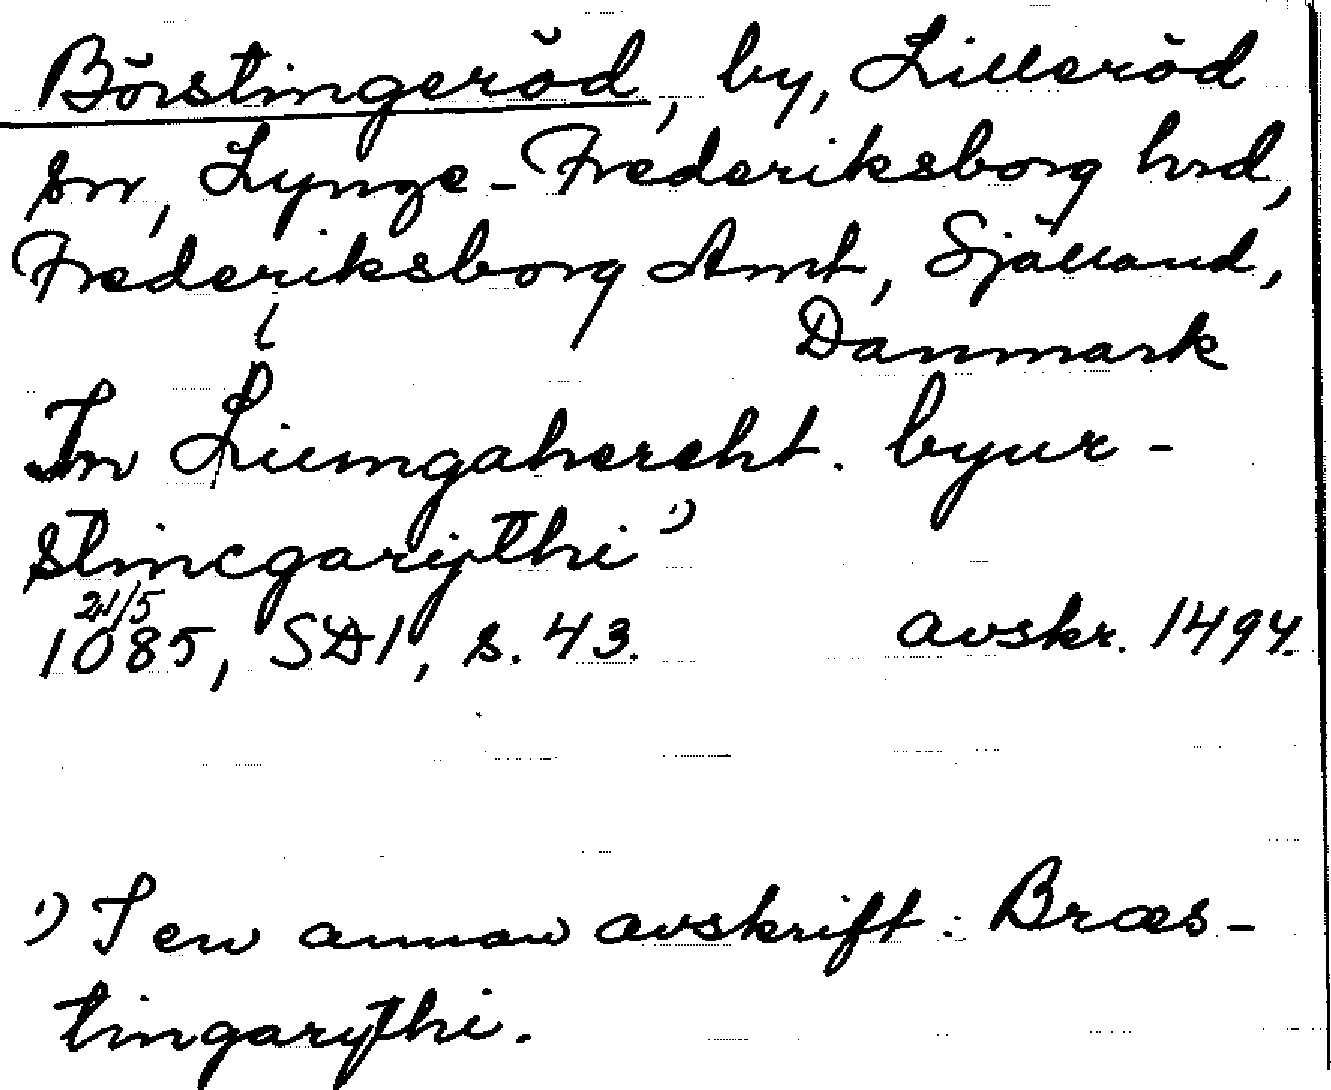 Börstingeröd, by, Lilleröd
sn, Lynge-Frederiksborg hrd,
Frederiksborg Amt, Själland,
Danmark
In Liumgahereht. byur-
stincgarythi ¹)
21/5
1085, SD1, s. 43. avskr. 1494.
¹) I en annan avskrift: Bræs-
tingarythi.